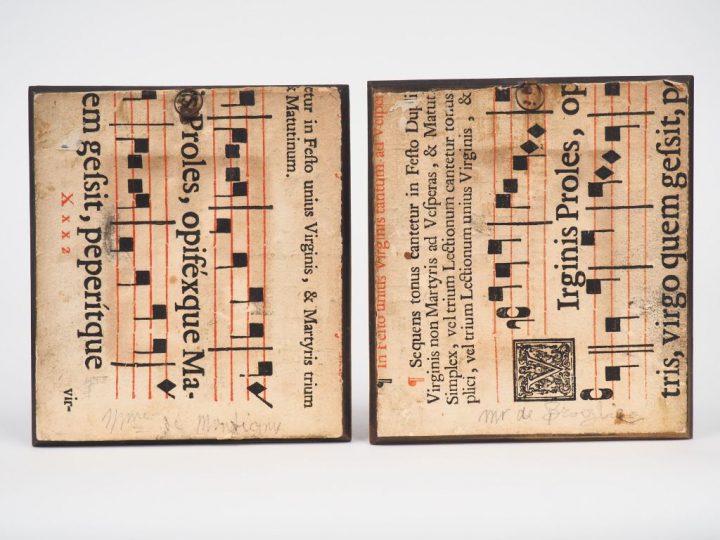 ctur in Feſto unius Virginis, & Martyris trium
& Matutinum.
Proles, opiféxque Ma-
em geſsit, peperítque
Xxx2
vir-
Mme de
In Feſto unius Virginis tantum ad Veſpe
¶ Sequens tonus cantetur in Feſto Dupli
Virginis non Martyris ad Veſperas, & Matut
Simplex, vel trium Lectionum cantetur tonus
plici, vel trium Lectionum unius Virginis, &
VIrginis Proles, op
tris, virgo quem geſsit, pe
mr de